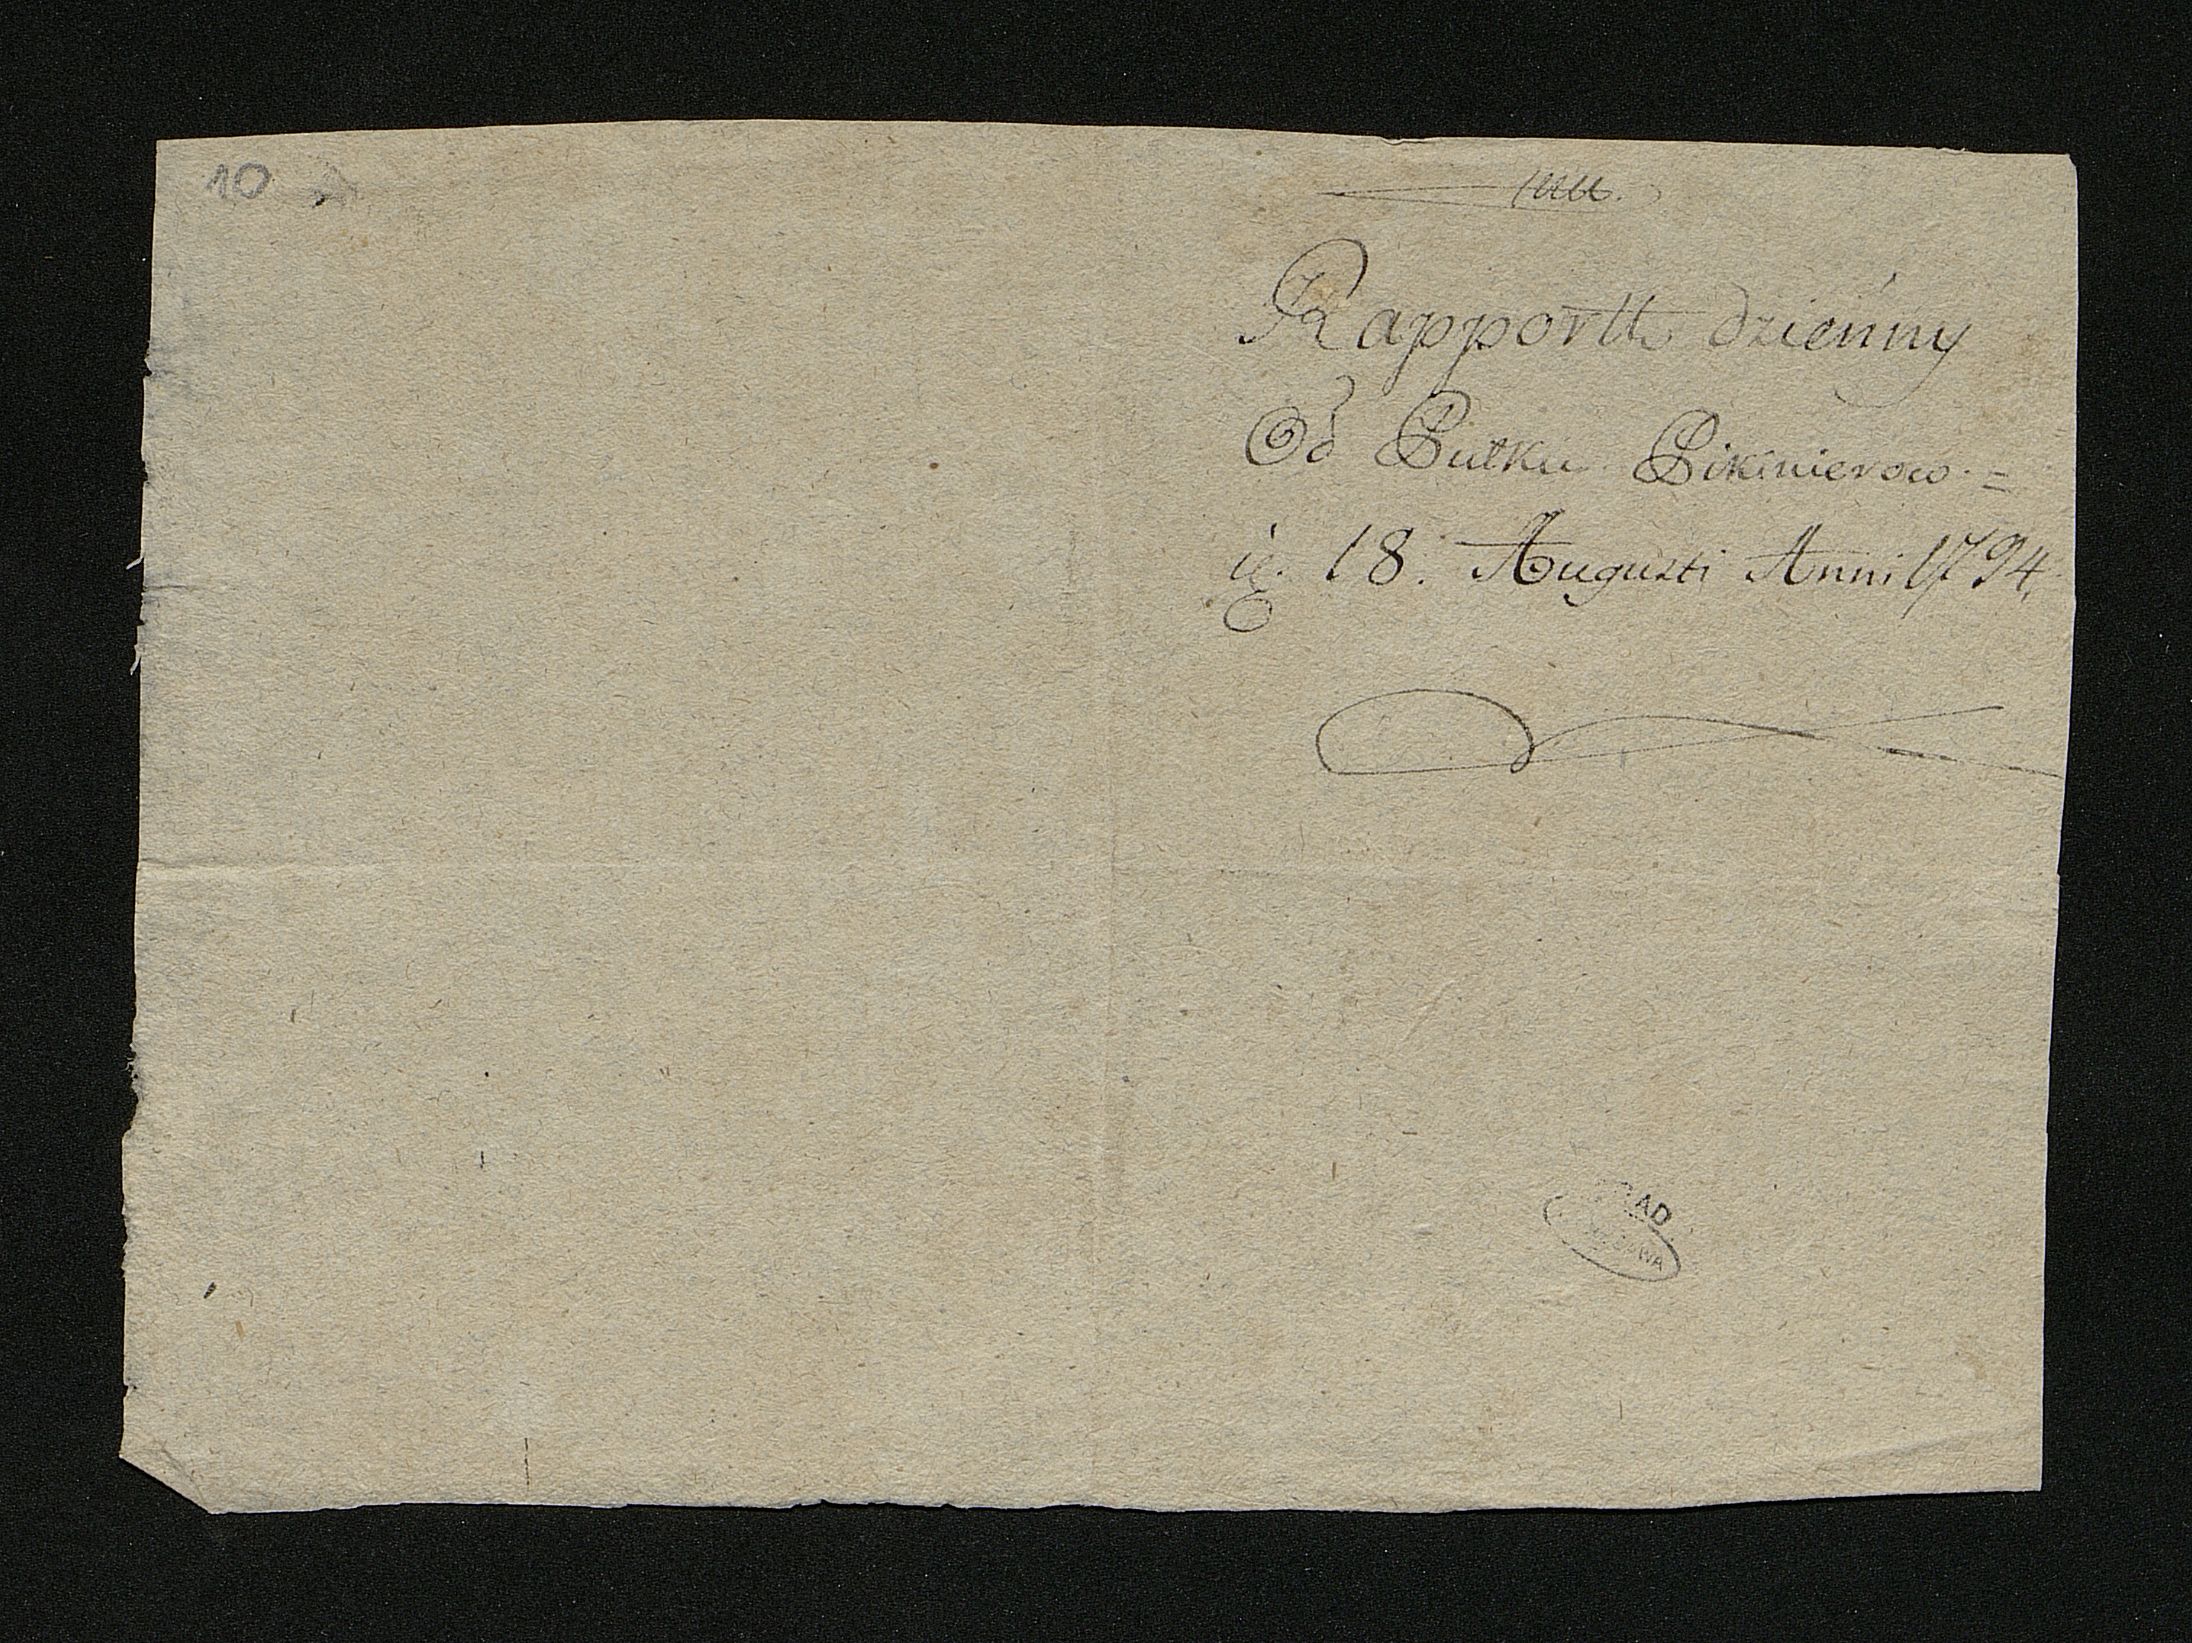 10
Rapportt dzienny
Od Pułku Pikinierow =
18. Augusti Anni 1794.
AGAD
WARSZAWA